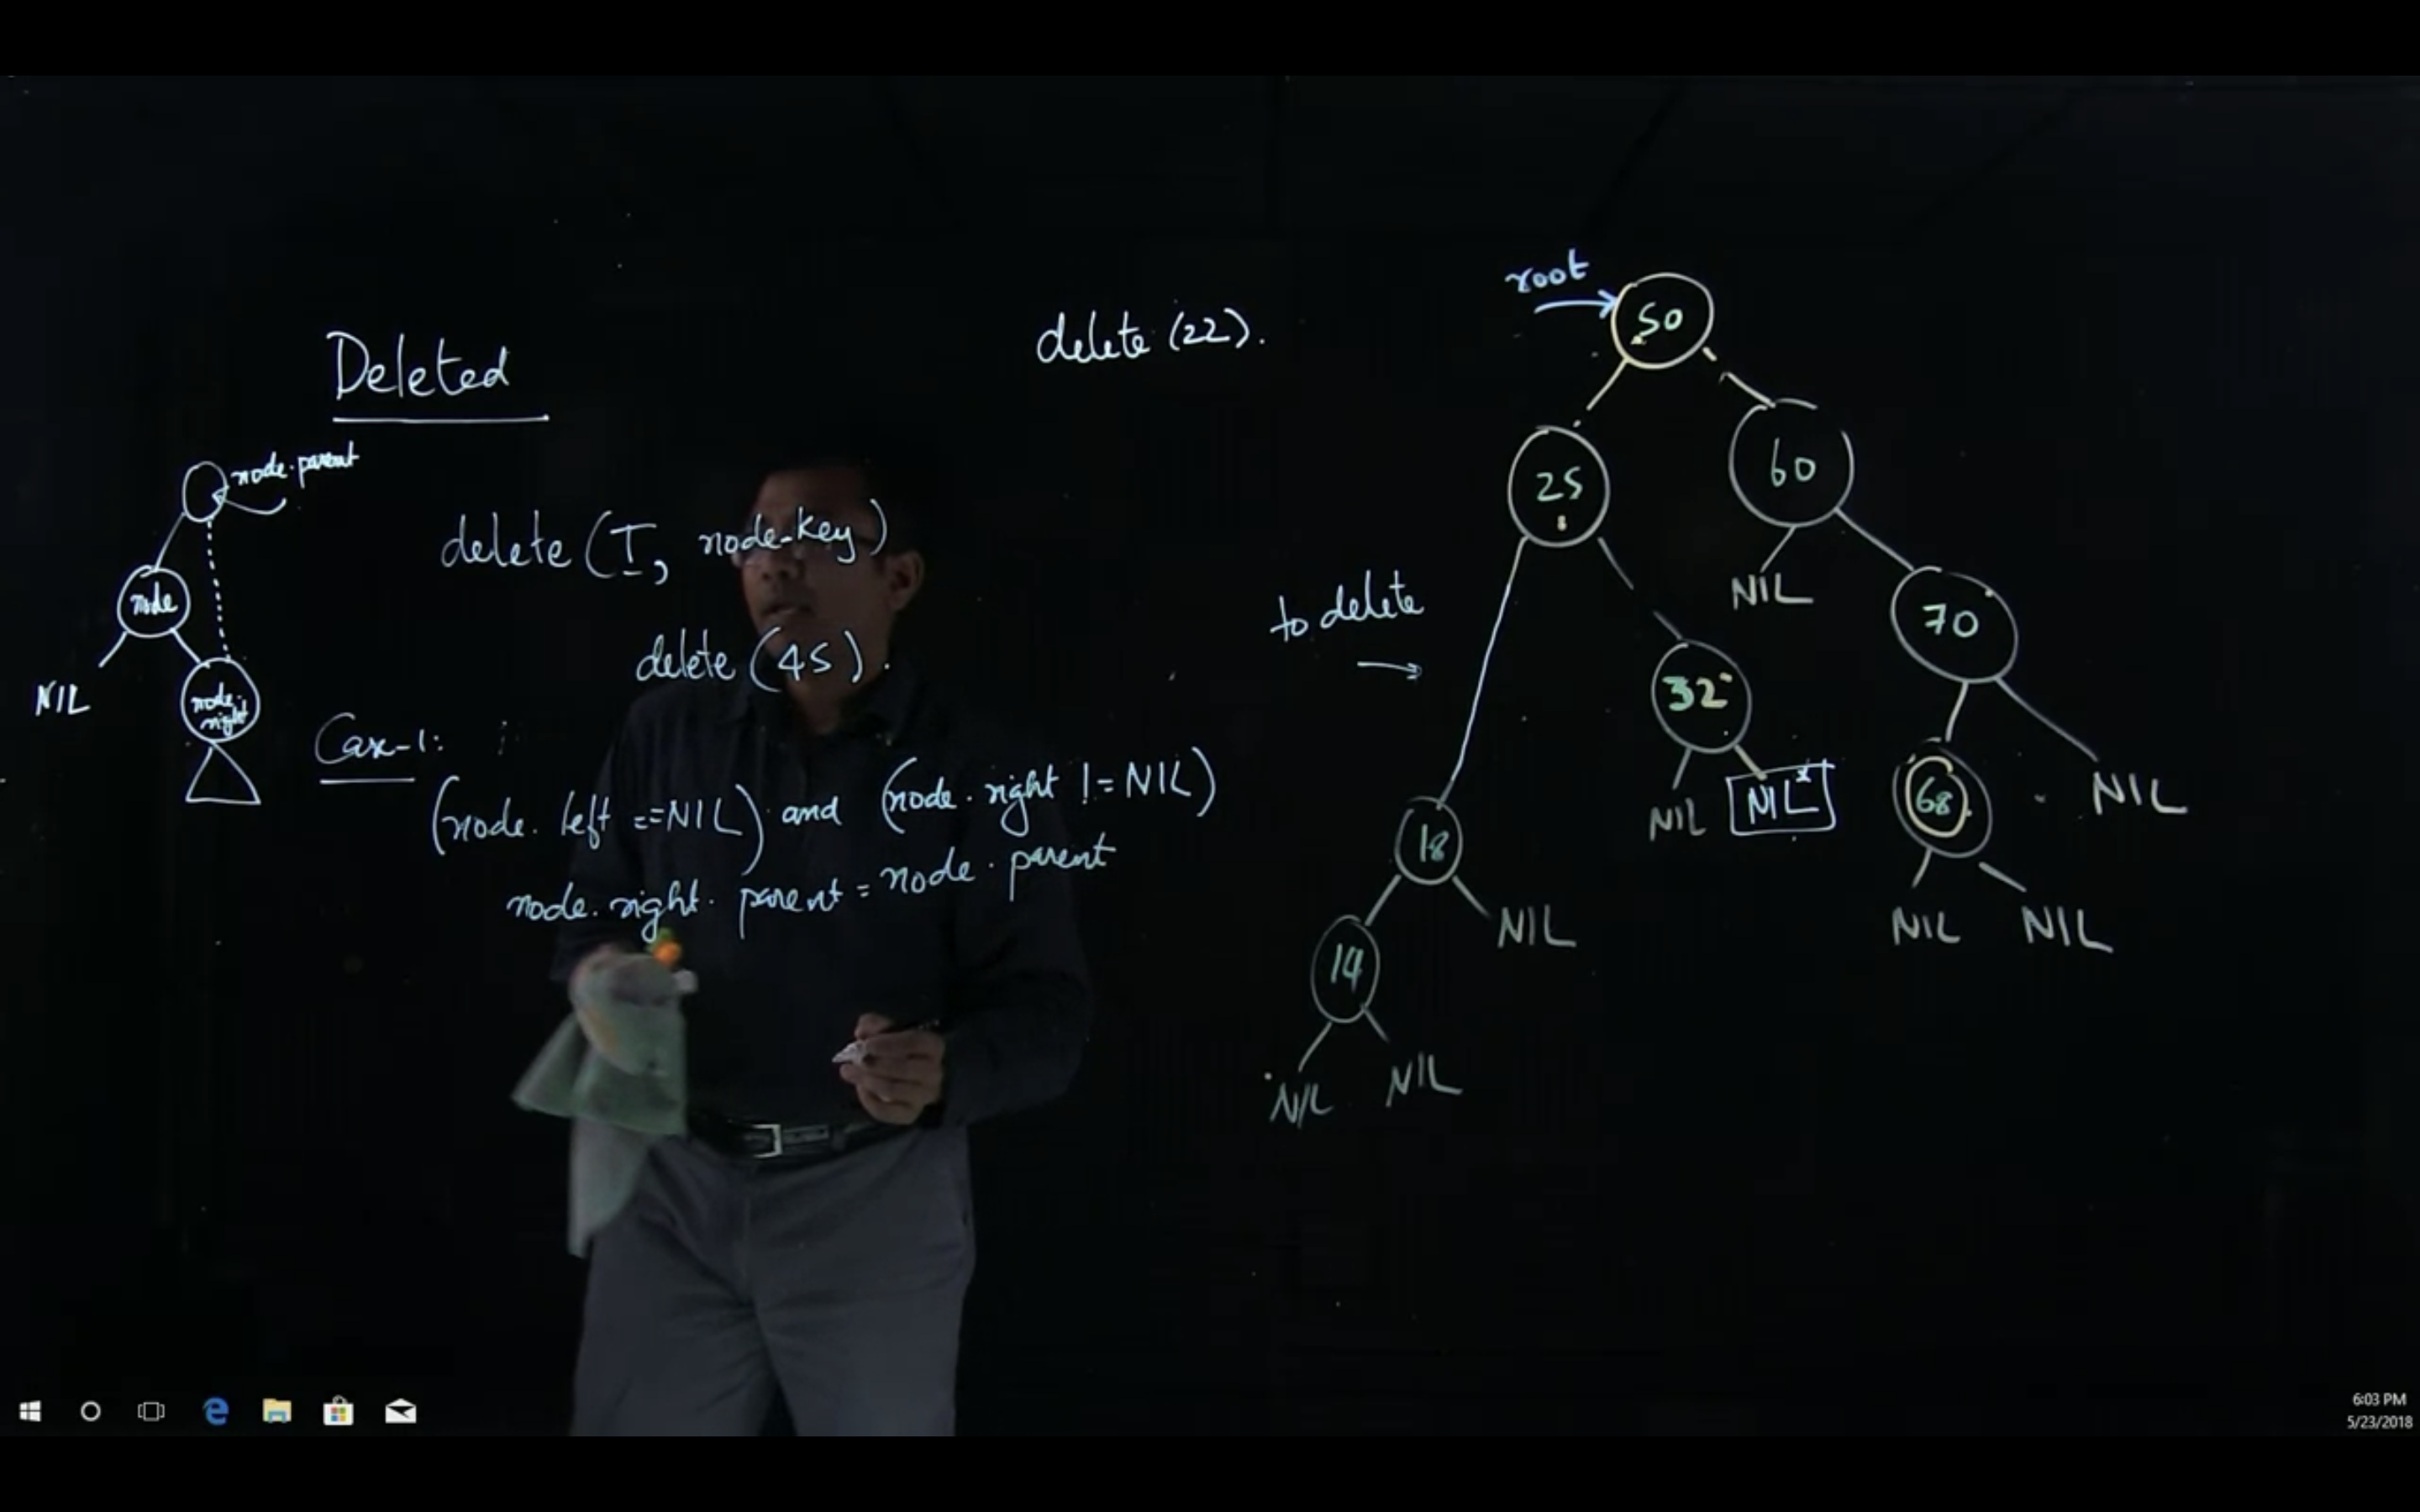 Deleted
node.parent
node
NIL
node.
right
delete (T, node-key)
delete (45).
Case-1:
(node. left ==NIL) and (node. right != NIL)
node. right. parent = node. parent
delete (22).
to delete
root
50
25
60
NIL
70
32
NIL
NIL*
68
NIL
NIL
NIL
18
NIL
14
NIL
NIL
6:03 PM
5/23/2018